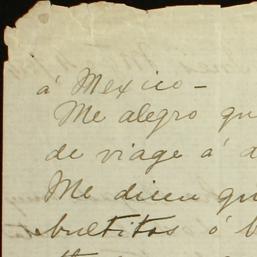 á Mexico –
Me alegro qu
de viage á d
Me dicen qu
bultitos ó b